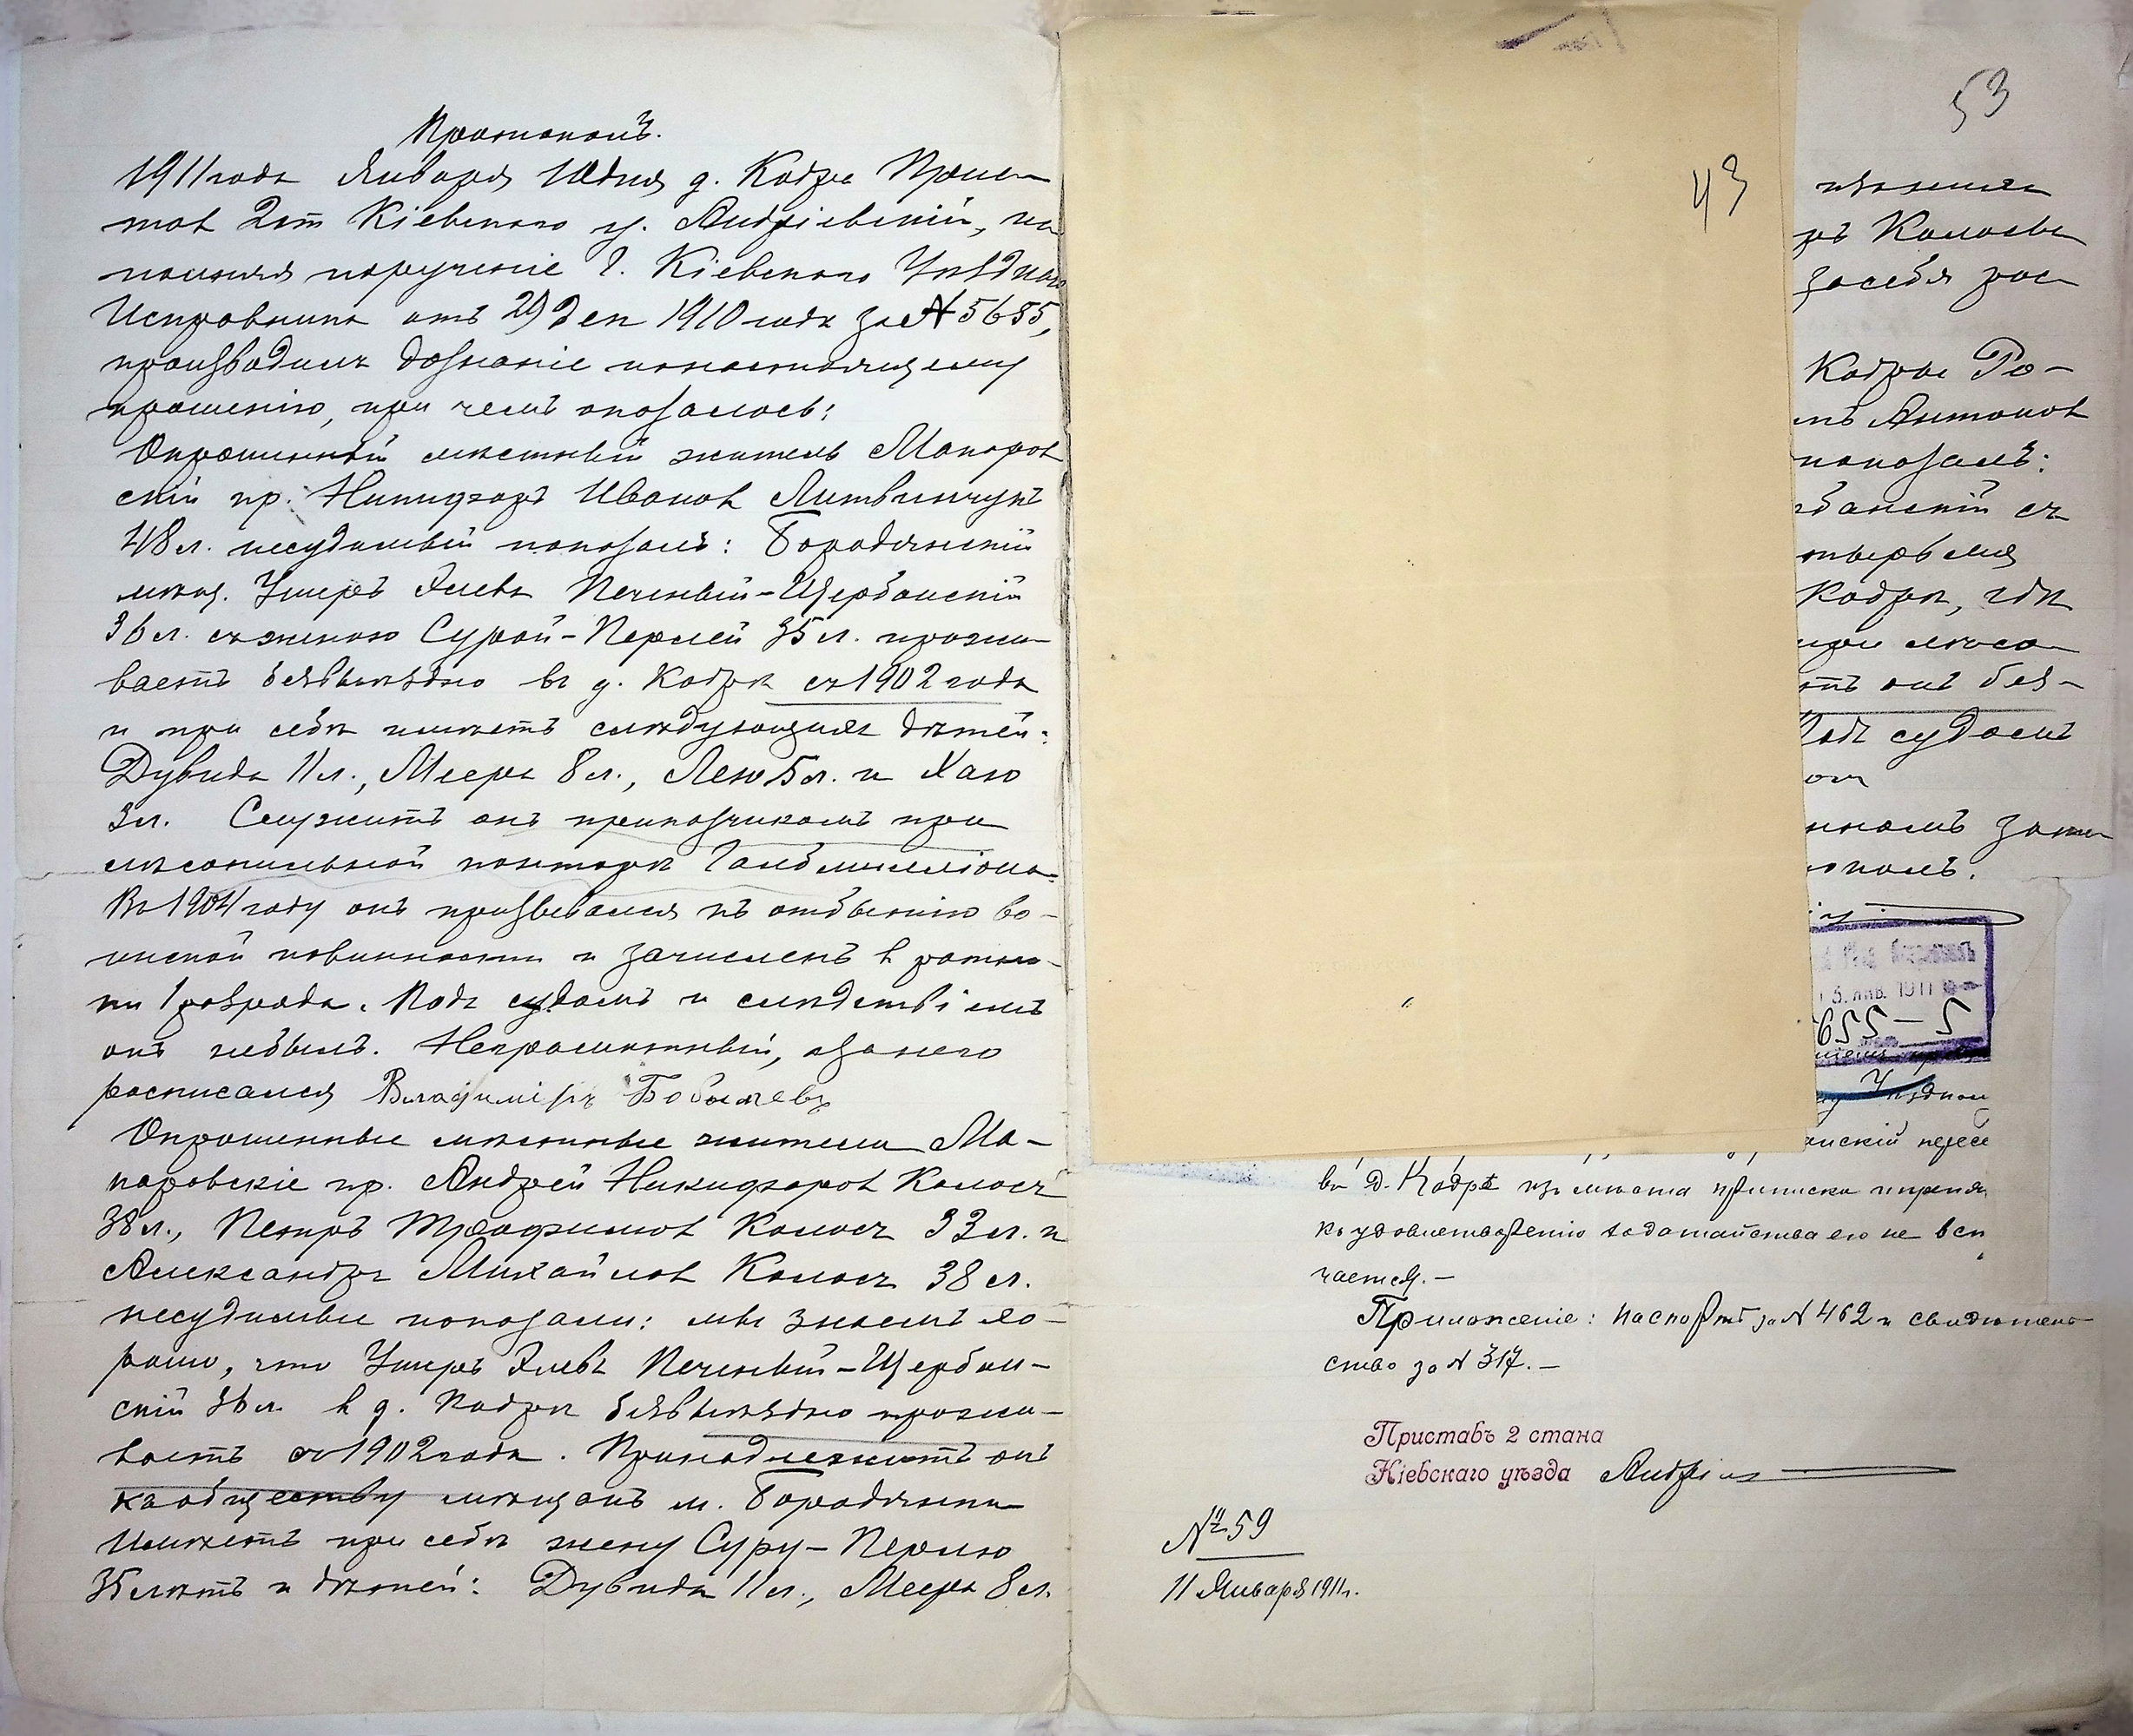 Протоколъ.
1911 года Января 10 дня д. Кодра Прис-
тавъ 2 ст Кіевскаго у. Андріевскій, ис
полняя порученіе Г. Кіевскаго Уѣзднаго
Исправника отъ 29 Дек 1910 года за № 5655,
производилъ дознаніе по настоящему
прошенію, при чемъ оказалось:
Опрошенный мѣстный житель Макаров
скій кр. Никифоръ Ивановъ Литвинчукъ
48 л. несудимый показалъ: Бородянскій
мѣщ. Ушеръ Элевъ Печеный-Щербанскій
36 л. съ женою Сурой-Перлей 35 л. прожи-
ваетъ безвыѣздно въ д. Кодрѣ съ 1902 года
и при себѣ имѣетъ слѣдующихъ дѣтей:
Дувида 11 л., Меера 8 л., Лею 5 л. и Хаю
3 л. Служитъ онъ приказчикомъ при
лѣсопильной конторѣ Гальбмилліона.
Въ 1904 году онъ призывался къ отбытію во-
инской повинности и зачисленъ в ратни-
ки 1 разряда. Подъ судомъ и слѣдствіемъ
онъ небылъ. Неграмотный, а за него
росписался Владиміръ Бобылевъ
Опрошенные мѣстные жители Ма-
каровскіе кр. Андрей Никифоровъ Колосъ
38 л., Петръ Трофимовъ Колосъ 33 л. и
Александръ Михайловъ Колосъ 38 л.
несудимые показали: мы знаемъ хо-
рошо, что Ушеръ Элевъ Печеный-Щербан-
скій 36 л. в д. Кодрѣ безвыѣздно прожи-
ваетъ съ 1902 года. Принадлежитъ онъ
къ обществу мѣщанъ м. Бородянки
Имѣетъ при себѣ жену Суру-Перлю
35 лѣтъ и дѣтей: Дувида 11 л., Меера 8 л.
43
53
ръ Колосъ
за себя рос
Кодры Ро-
Антоновъ
показалъ:
рбанскій съ
Кодрѣ, гдѣ
при лѣсо-
онъ без-
Подъ судомъ
околъ.
янв. 1911
5655 — 5
анскій пересе
въ Д. Кодрѣ изъ мѣста приписки
къ удовлетворенію ходатайства его не встр
чается.—
Приложеніе: паспортъ за № 462 и свидѣтель-
ство за № 317.—
Приставъ 2 стана
Кіевскаго уѣзда Андрі
№ 59
11 Января 1911 г.